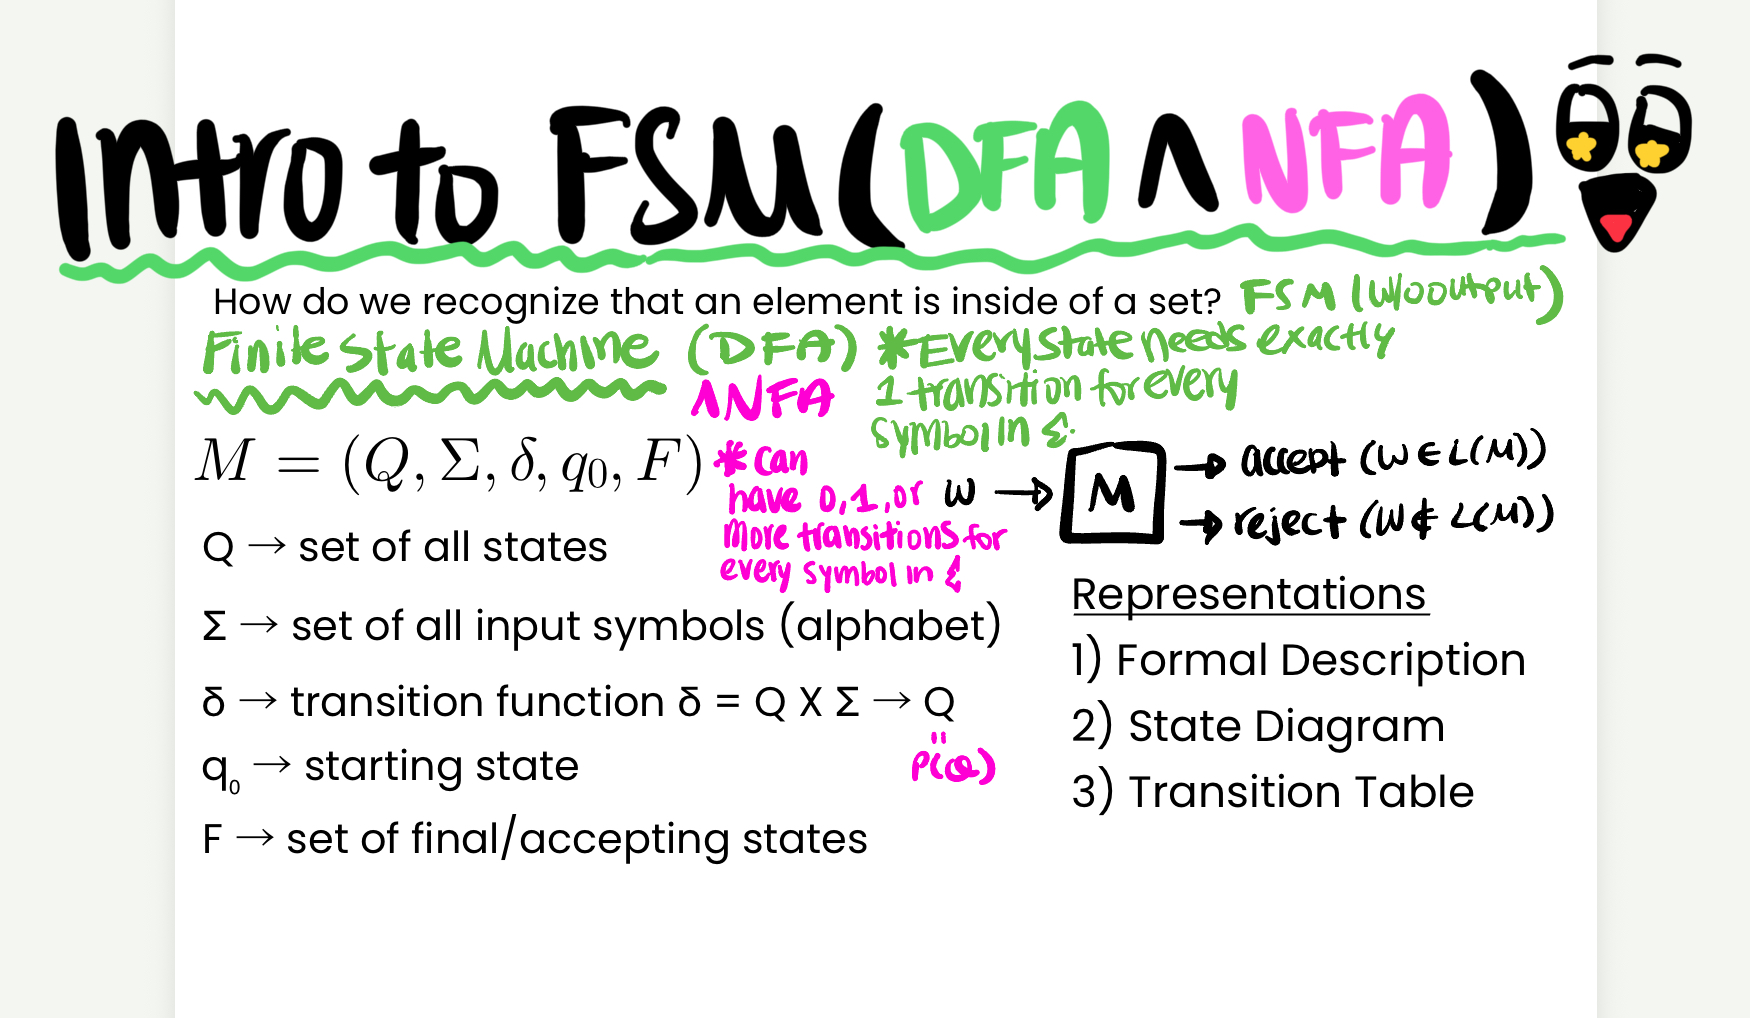 Intro to FSM (DFA ∧ NFA)
How do we recognize that an element is inside of a set? FSM (w/o output)
Finite State Machine (DFA) *Every state needs exactly
1 transition for every
symbol in Σ.
∧ NFA
M = (Q, Σ, δ, q₀, F)
*can
have 0,1,or
more transitions for
every symbol in Σ
w → M → accept (w ∈ L(M))
→ reject (w ∉ L(M))
Q → set of all states
Σ → set of all input symbols (alphabet)
δ → transition function δ = Q X Σ → Q
"
P(Q)
q₀ → starting state
F → set of final/accepting states
Representations
1) Formal Description
2) State Diagram
3) Transition Table